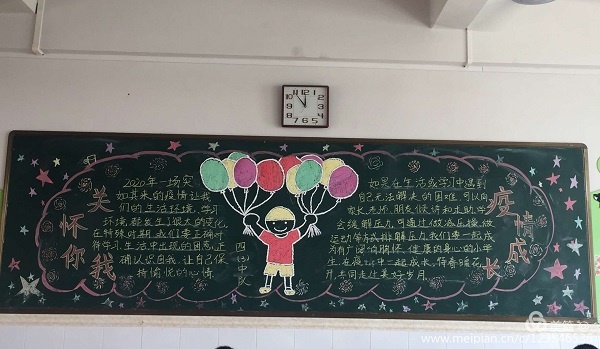 关怀你我
2020年一场突
如其来的疫情让我
们的生活环境、学习
环境都发生了很大的变化
在特殊时期，我们要正确对
待学习、生活中出现的困惑，正
确认识自我，让自己保
持愉悦的心情
四(3)中队
如果在生活或学习中遇到
自己无法解决的困难，可以向
家长、老师、朋友倾诉和求助，学
会缓解压力，可通过做深呼吸、做
运动等方式排解压力，我们要一起成
为有广阔的胸怀、健康的身心的小学
生，在疫
中一起成长，待春暖花
开，共同走过美好岁月
疫情成长
www.meipian.cn/c/